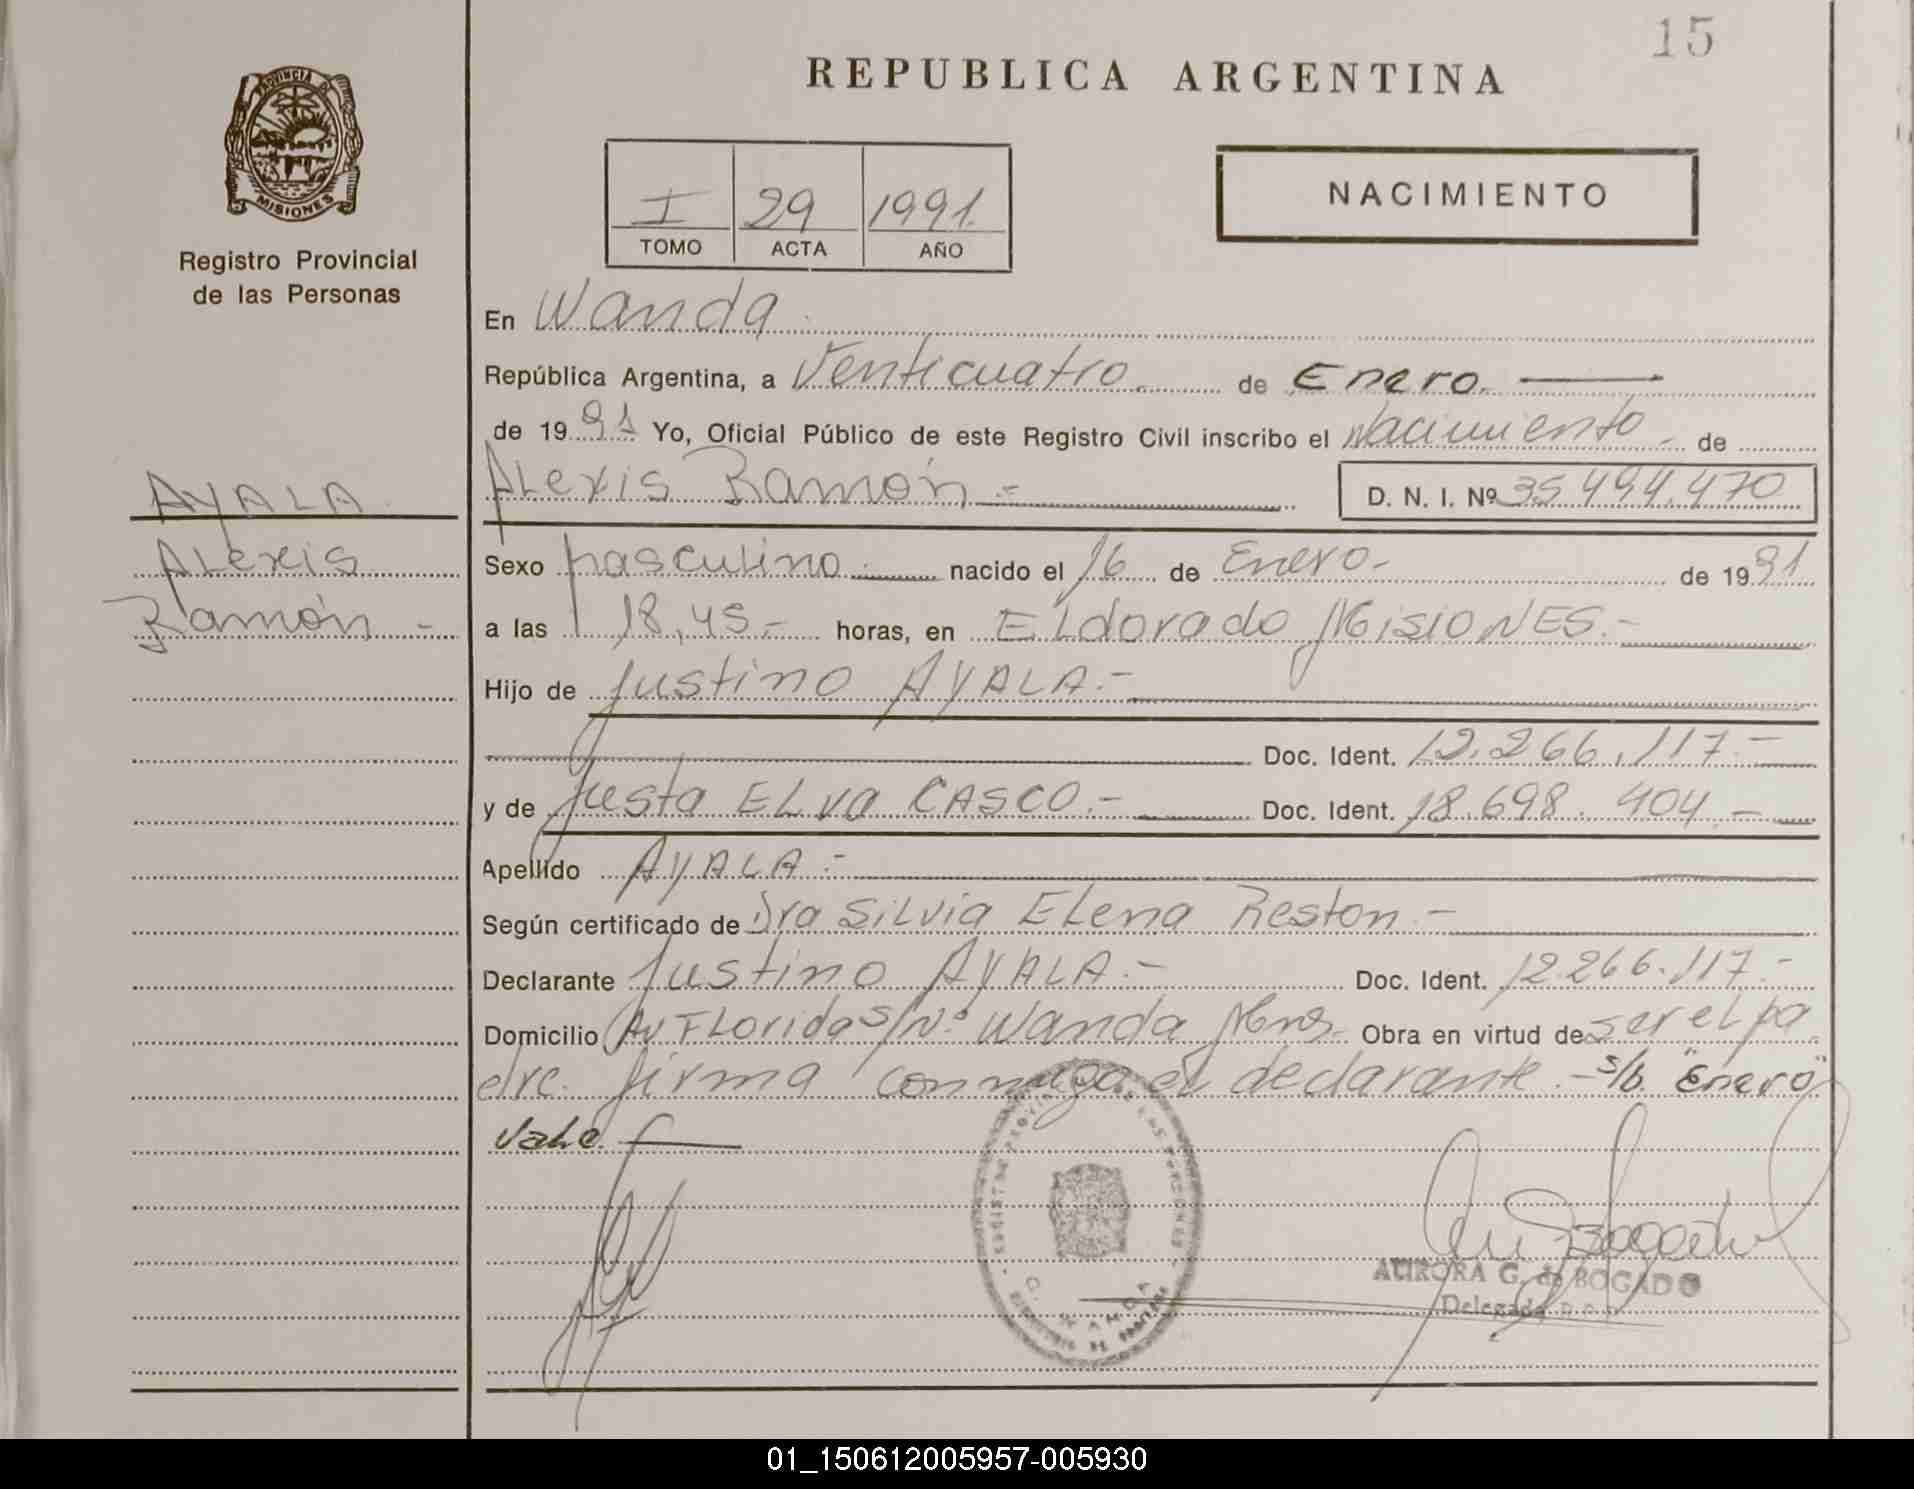 15
REPUBLICA ARGENTINA
PROVINCIA DE
MISIONES
Registro Provincial
de las Personas
I 29 1991.
TOMO ACTA AÑO
NACIMIENTO
En Wanda
República Argentina, a Venticuatro. de Enero.
de 1991 Yo, Oficial Público de este Registro Civil inscribo el Nacimiento de
AYALA
Alexis Ramón.- D. N. I. Nº 35.494.470
Alexis
Ramón -
Sexo masculino nacido el 16 de Enero.- de 1991
a las 18,45.- horas, en ELdorado MisioNES.-
Hijo de Justino AYALA.-
Doc. Ident. 12.266.117.-
y de Justa ELva CASCO.- Doc. Ident. 18.698.404.-
Apellido AYALA.-
Según certificado de Dra SiLvia ELena Reston.-
Declarante Justino AYALA.- Doc. Ident. 12.266.117.-
Domicilio Av FLorida S/Nº Wanda Mnes. Obra en virtud de ser el pa
dre. firma conmigo el declarante.- s/b. "Enero"
Vale.
AURORA G. de BOGADO
Delegada R.P.P.
01_150612005957-005930